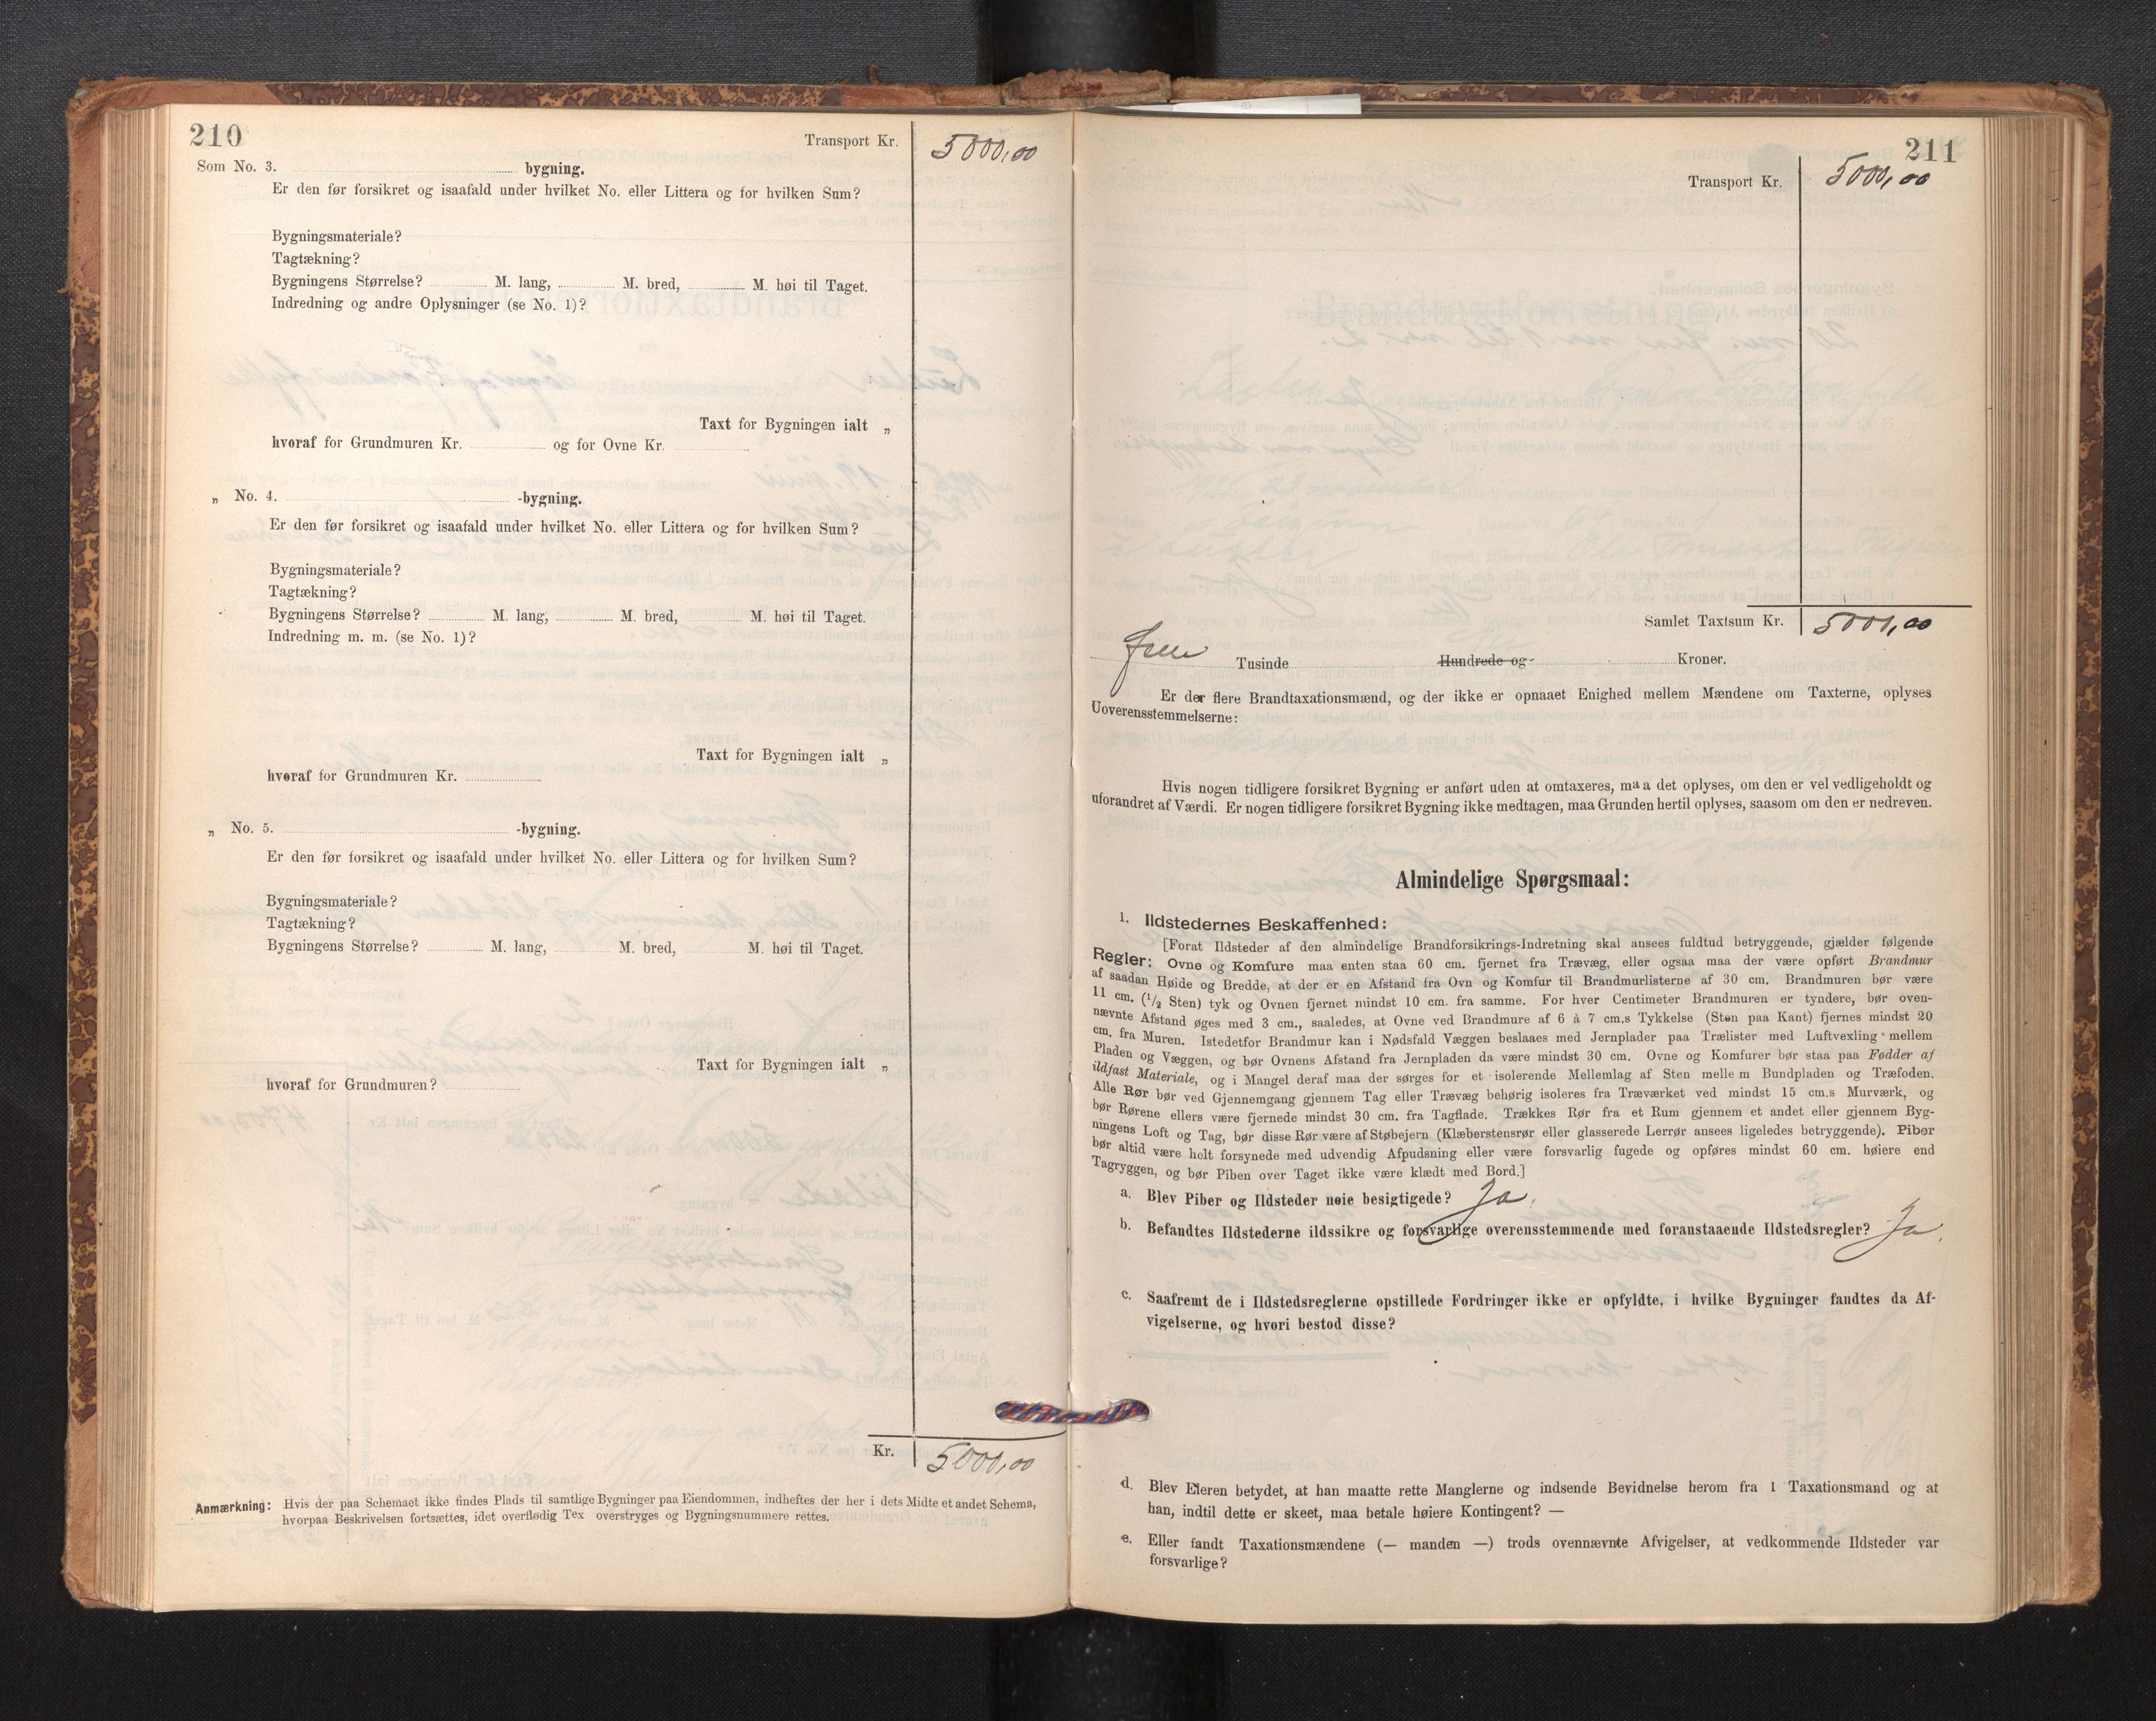 210
Transport Kr. 5000,00
Som No. 3. bygning.
Er den før forsikret og isaafald under hvilket No. eller Littera og for hvilken Sum?
Bygningsmateriale?
Tagtækning?
Bygningens Størrelse? M. lang, M. bred, M. høi til Taget.
Indredning og andre Oplysninger (se No. 1)?
Taxt for Bygningen ialt „
hvoraf for Grundmuren Kr. og for Ovne Kr.
„ No. 4. -bygning.
Er den før forsikret og isaafald under hvilket No. eller Littera og for hvilken Sum?
Bygningsmateriale?
Tagtækning?
Bygningens Størrelse? M. lang, M. bred, M. høi til Taget.
Indredning m. m. (se No. 1)?
Taxt for Bygningen ialt „
hvoraf for Grundmuren Kr.
„ No. 5. -bygning.
Er den før forsikret og isaafald under hvilket No. eller Littera og for hvilken Sum?
Bygningsmateriale?
Tagtækning?
Bygningens Størrelse? M. lang, M. bred, M. høi til Taget.
Taxt for Bygningen ialt „
hvoraf for Grundmuren?
Kr. 5000,00
Anmærkning: Hvis der paa Schemaet ikke findes Plads til samtlige Bygninger paa Eiendommen, indheftes der her i dets Midte et andet Schema,
hvorpaa Beskrivelsen fortsættes, idet overflødig Tex overstryges og Bygningsnummere rettes.
211
Transport Kr. 5000,00
Samlet Taxtsum Kr. 5000,00
Fem Tusinde Hundrede og Kroner.
Er der flere Brandtaxationsmænd, og der ikke er opnaaet Enighed mellem Mændene om Taxterne, oplyses
Uoverensstemmelserne:
Hvis nogen tidligere forsikret Bygning er anført uden at omtaxeres, maa det oplyses, om den er vel vedligeholdt og
uforandret af Værdi. Er nogen tidligere forsikret Bygning ikke medtagen, maa Grunden hertil oplyses, saasom om den er nedreven.
Almindelige Spørgsmaal:
1. Ildstedernes Beskaffenhed:
[Forat Ildsteder af den almindelige Brandforsikrings-Indretning skal ansees fuldtud betryggende, gjælder følgende
Regler: Ovne og Komfure maa enten staa 60 cm. fjernet fra Trævæg, eller ogsaa maa der være opført Brandmur
af saadan Høide og Bredde, at der er en Afstand fra Ovn og Komfur til Brandmurlisterne af 30 cm. Brandmuren bør være
11 cm. (1/2 Sten) tyk og Ovnen fjernet mindst 10 cm. fra samme. For hver Centimeter Brandmuren er tyndere, bør oven-
nævnte Afstand øges med 3 cm., saaledes, at Ovne ved Brandmure af 6 à 7 cm.s Tykkelse (Sten paa Kant) fjernes mindst 20
cm. fra Muren. Istedetfor Brandmur kan i Nødsfald Væggen beslaaes med Jernplader paa Trælister med Luftvexling mellem
Pladen og Væggen, og bør Ovnens Afstand fra Jernpladen da være mindst 30 cm. Ovne og Komfurer bør staa paa Fødder af
ildfast Materiale, og i Mangel deraf maa der sørges for et isolerende Mellemlag af Sten mellem Bundpladen og Træfoden.
Alle Rør bør ved Gjennemgang gjennem Tag eller Trævæg behørig isoleres fra Træværket ved mindst 15 cm.s Murværk, og
bør Rørene ellers være fjernede mindst 30 cm. fra Tagflade. Trækkes Rør fra et Rum gjennem et andet eller gjennem Byg-
ningens Loft og Tag, bør disse Rør være af Støbejern (Klæberstensrør eller glasserede Lerrør ansees ligeledes betryggende). Piber
bør altid være helt forsynede med udvendig Afpudsning eller være forsvarlig fugede og opføres mindst 60 cm. høiere end
Tagryggen, og bør Piben over Taget ikke være klædt med Bord.]
a. Blev Piber og Ildsteder nøie besigtigede? Ja.
b. Befandtes Ildstederne ildssikre og forsvarlige overensstemmende med foranstaaende Ildstedsregler? Ja.
c. Saafremt de i Ildstedsreglerne opstillede Fordringer ikke er opfyldte, i hvilke Bygninger fandtes da Af-
vigelserne, og hvori bestod disse?
d. Blev Eieren betydet, at han maatte rette Manglerne og indsende Bevidnelse herom fra 1 Taxationsmand og at
han, indtil dette er skeet, maa betale høiere Kontingent? —
e. Eller fandt Taxationsmændene (— manden —) trods ovennævnte Afvigelser, at vedkommende Ildsteder var
forsvarlige?